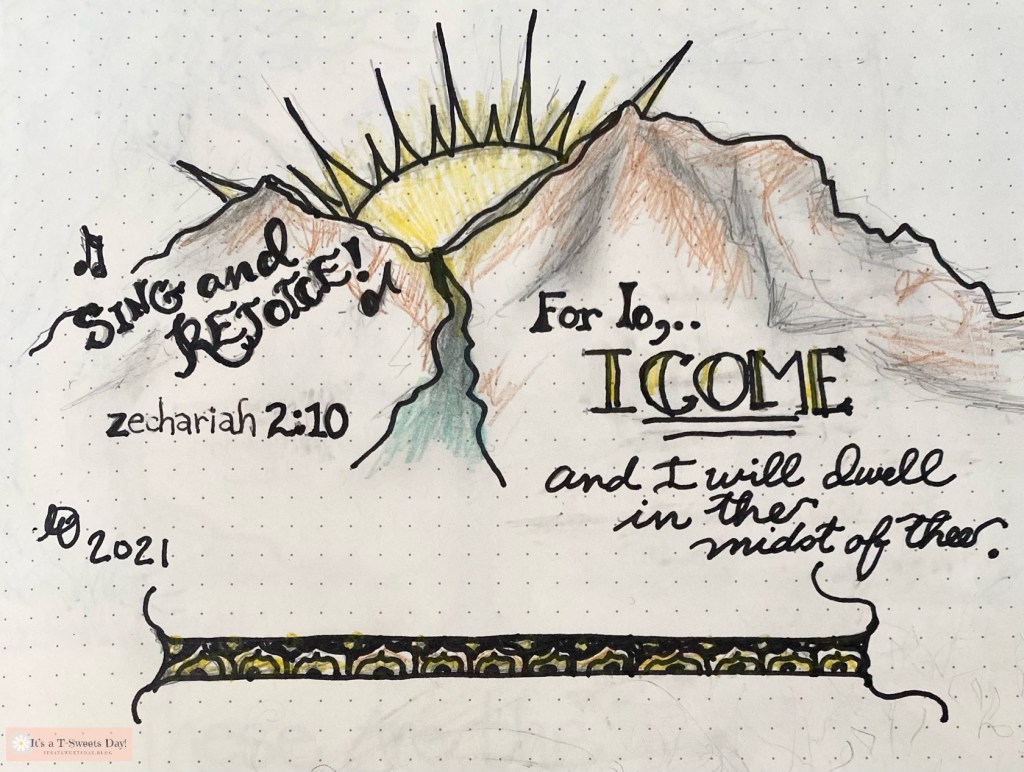 SING and
REJOICE!
zechariah 2:10
For lo,..
I COME
and I will dwell
in the
midst of thee.
2021
It's a T-Sweets Day!